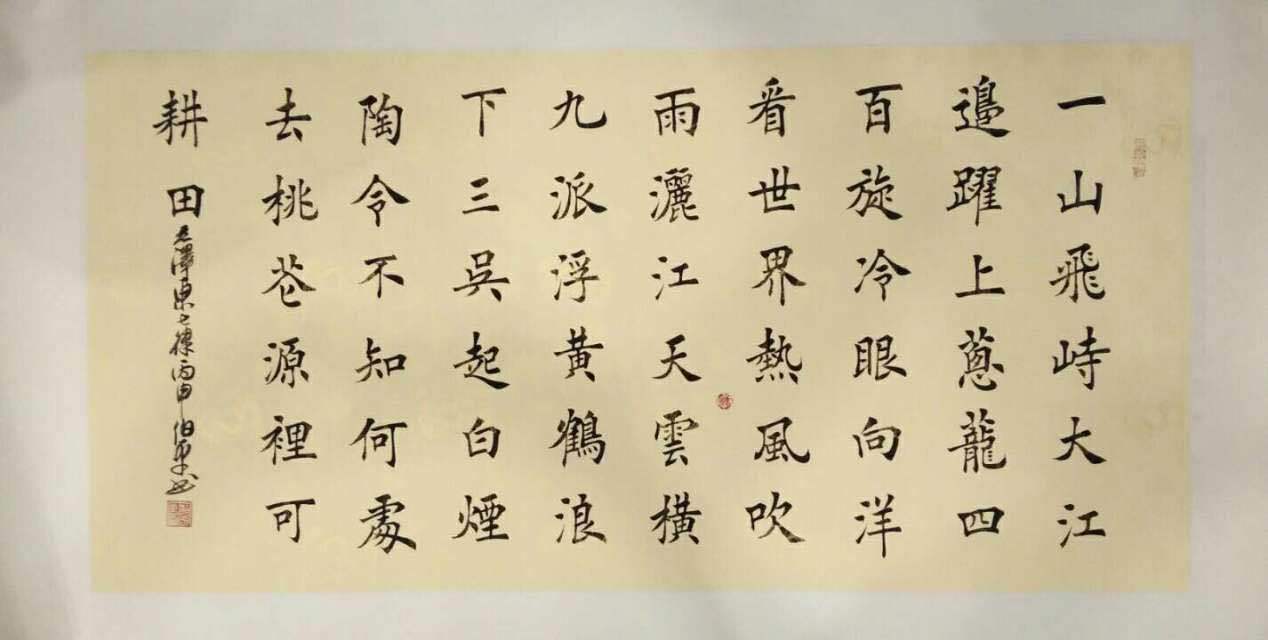 一山飛峙大江
邊躍上蔥蘢四
百旋冷眼向洋
看世界熱風吹
雨灑江天雲橫
九派浮黃鶴浪
下三吳起白煙
陶令不知何處
去桃花源裡可
耕田
毛澤東七律丙申伯